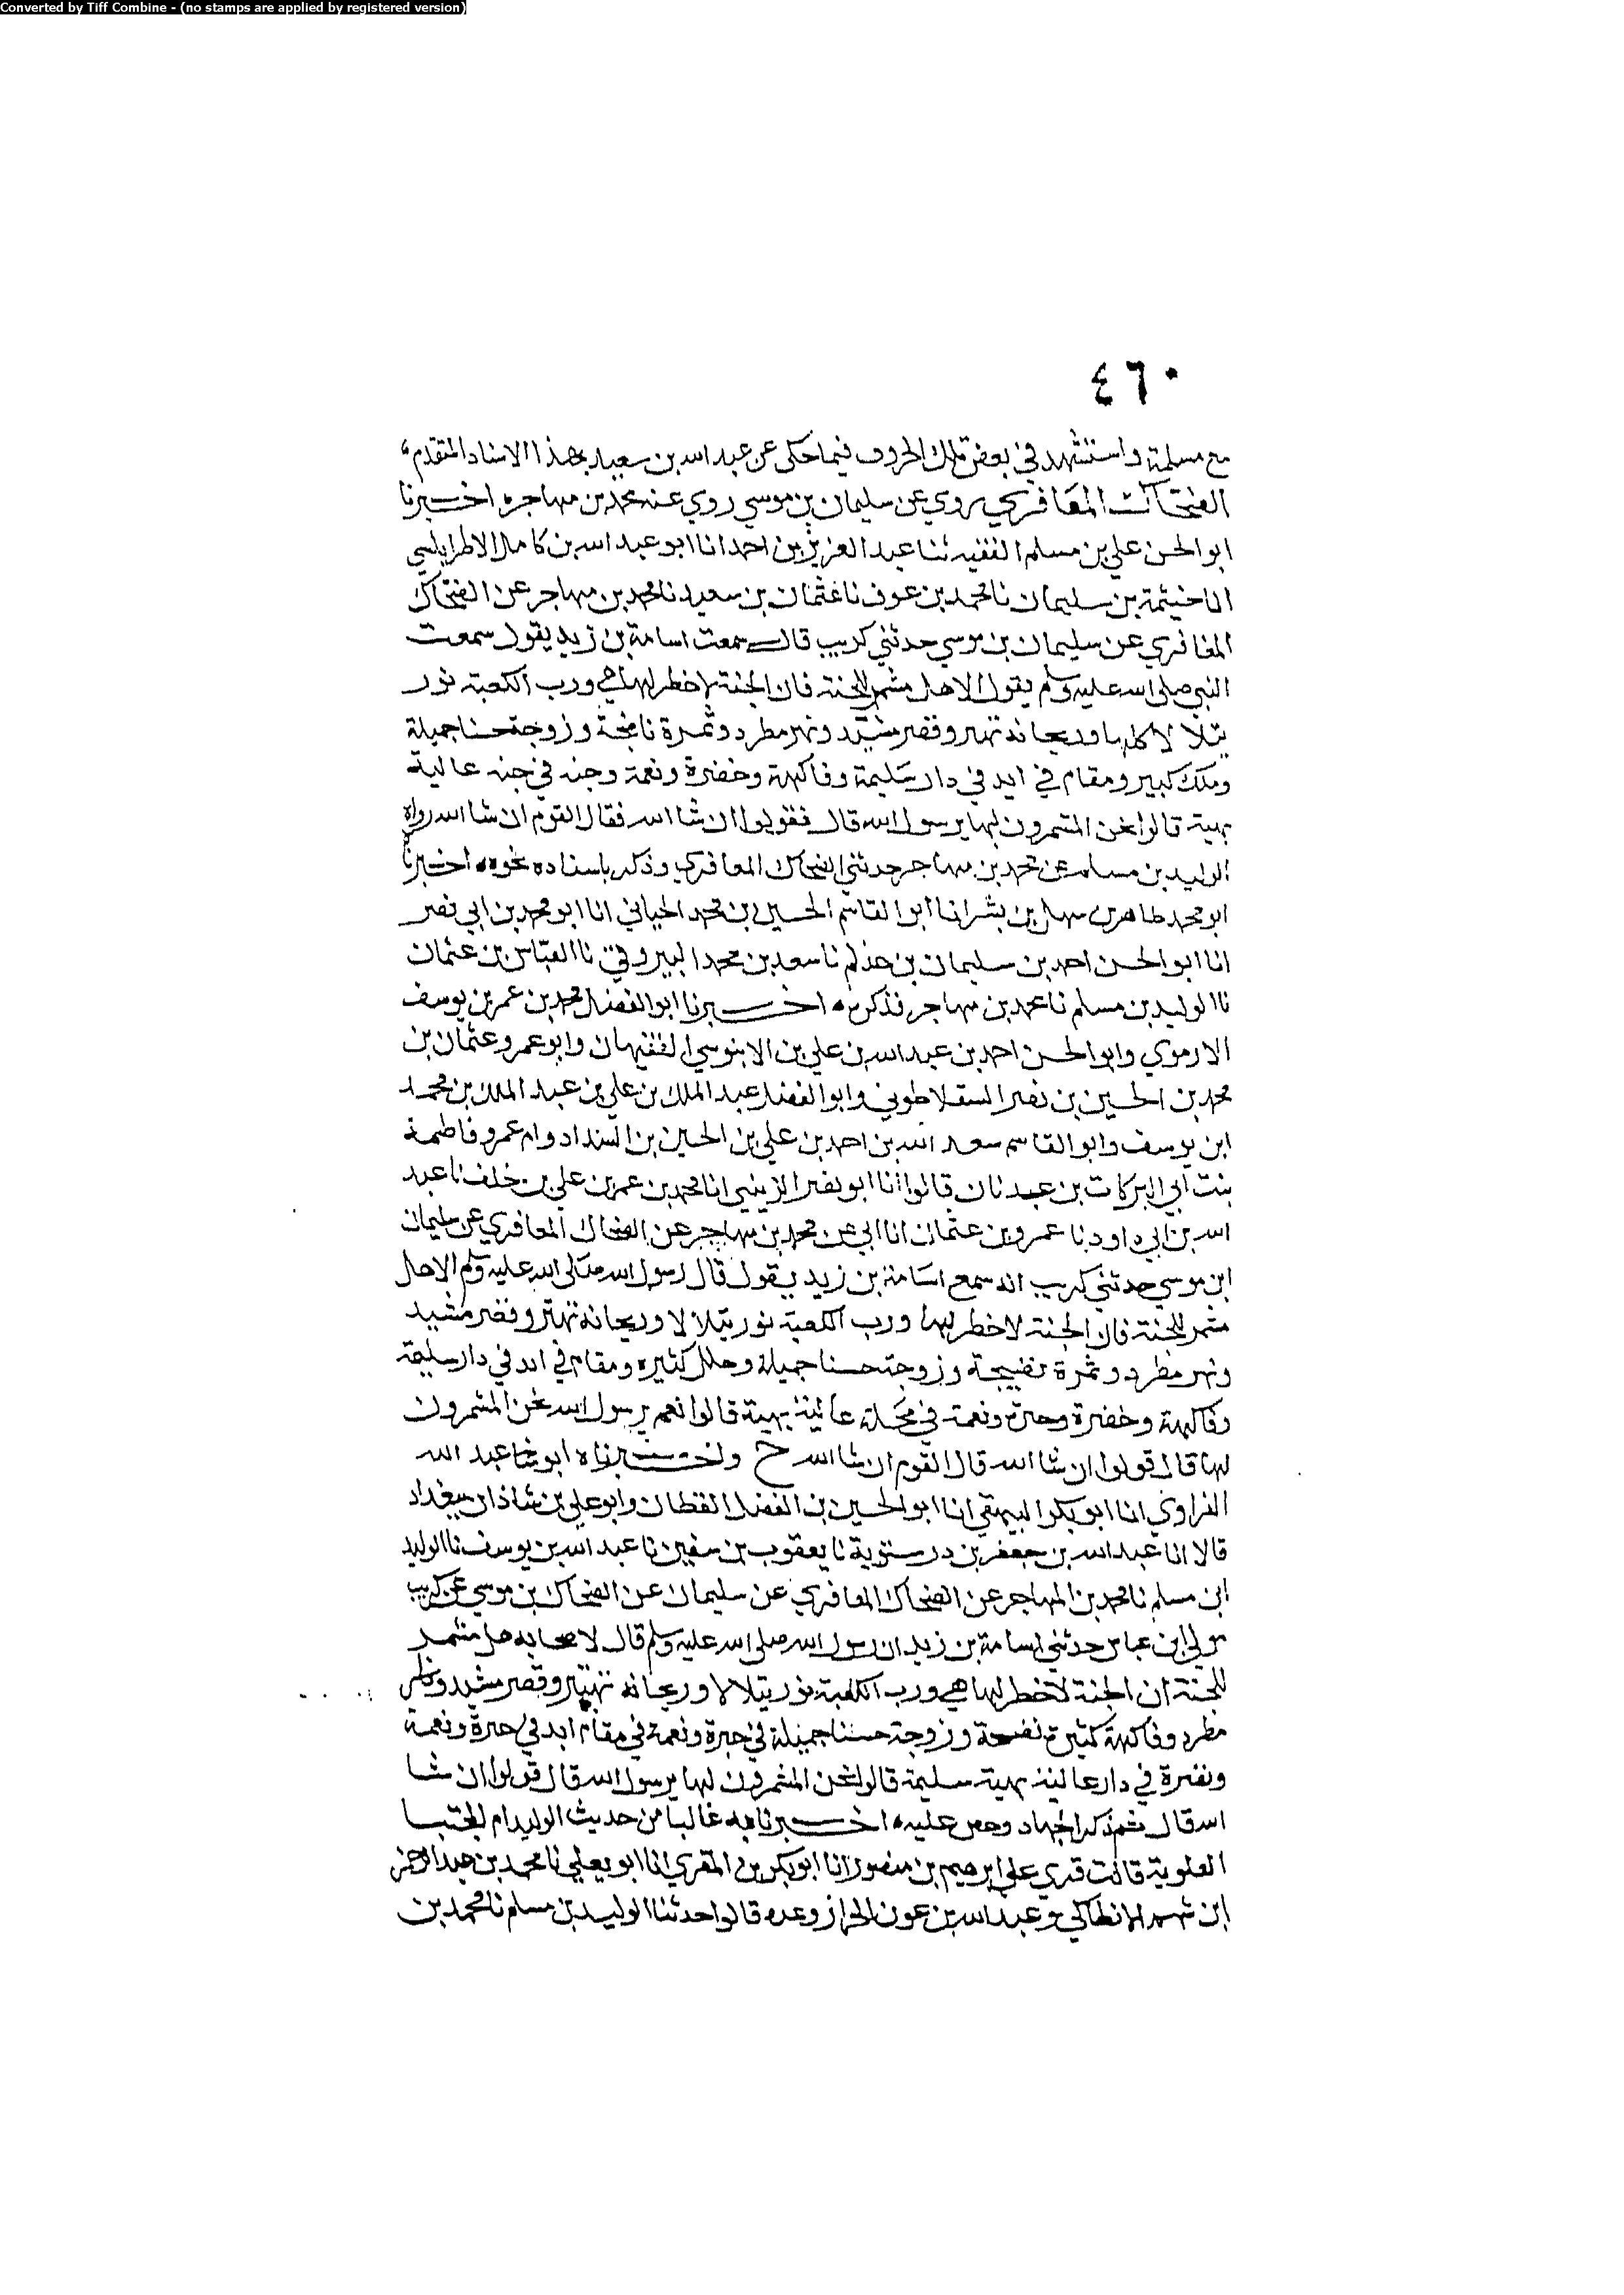 Converted by Tiff Combine - (no stamps are applied by registered version)
٤٦٠
مع مسلمة واستشهد في بعض تلك الحروف فيما حكى عن عبد الله بن سعيد بهذا الاسناد المتقدم
الضحاك المعافري يروي عن سليمان بن موسي روي عنه محمد بن مهاجر اخبرنا
ابو الحسن علي بن مسلم الفقيه ثنا عبد العزيز بن احمد انا ابو عبد الله بن كامل الاطرابلسي
انا خيثمة بن سليمان نا محمد بن عوف نا عثمان بن سعيد نا محمد بن مهاجر عن الضحاك
المعافري عن سليمان بن موسي حدثني كريب قال سمعت اسامة بن زيد يقول سمعت
النبي صلى الله عليه وسلم يقول الاهل مشمر للجنة فان الجنة لا خطر لها هي ورب الكعبة نور
يتلالا كلها وريحانة تهتر وقصر مشيد ونهر مطرد وثمرة ناضجة وزوجة حسنا جميلة
وملك كبير ومقام في ابد في دار سليمة وفاكهة وخضرة ونعمة وجنه في جنه عالية
بهية قالوا نحن المشمرون لها يرسول الله قال فقولوا ان شا الله فقال القوم ان شا الله رواه
الوليد بن مسلم عن محمد بن مهاجر حدثني الضحاك المعافري وذكر باسناده نحوه اخبرنا
ابو محمد طاهر بن سهل بن بشر انا ابوا القاسم الحسين بن محمد الحيائي انا ابو محمد بن ابي نصر
انا ابو الحسن احمد بن سليمان بن حذلم نا سعد بن محمد البيروتي نا العباس بن عثمان
نا الوليد بن مسلم نا محمد بن مهاجر فذكره اخبرنا ابو الفضل محمد بن عمر بن يوسف
الارموي وابو الحسن احمد بن عبد الله بن علي بن الابنوسي الفقيهان وابو عمرو عثمان بن
محمد بن الحسين بن نصر السقلاطوني وابو الفضل عبد الملك بن علي بن عبد الملك بن محمد
ابن يوسف وابو القاسم سعد الله بن احمد بن علي بن الحسين بن السنداد وام عمرو فاطمة
بنت ابي البركات بن عبدنان قالوا انا ابو نصر الزينبي انا محمد بن عمر بن علي بن خلف نا عبد
الله بن ابي داود نا عمرو بن عثمان انا ابي عن محمد بن مهاجر عن الضحاك المعافري عن سليمان
ابن موسي حدثني كريب انه سمع اسامة بن زيد يقول قال رسول الله صلى الله عليه وسلم الاهل
مشمر للجنة فان الجنة لا خطر لها ورب الكعبة نور يتلالا وريحانة تهتز وقصر مشيد
ونهر مطرد وثمرة نضيجة وزوجة حسنا جميلة وحلل كثيره ومقام في ابد في دار سليمة
وفاكهة وخضرة وحبرة ونعمة في محلة عالية بهية قالوا نعم يرسول الله نحن المشمرون
لها قال قولوا ان شا الله قال القوم ان شا الله ح واخبرناه ابو عبد الله
الفراوي انا ابو بكر البيهقي انا ابو الحسين بن الفضل القطان وابو علي بن شاذان ببغداد
قالا انا عبد الله بن جعفر بن درستوية نا يعقوب بن سفين نا عبد الله بن يوسف نا الوليد
ابن مسلم نا محمد بن المهاجر عن الضحاك المعافري عن سليمان عن الضحاك بن موسي عن كريب
مولي ابن عباس حدثني اسامة بن زيد ان رسول الله صلى الله عليه وسلم قال لاصحابه هل مشمر
للجنة ان الجنة لا خطر لها هي ورب الكعبة نور يتلالا وريحانة تهتز وقصر مشيد ونهر
مطرد وفاكهة كثيرة نضيجة وزوجة حسنا جميلة في حبرة ونعمة في مقام ابد في حبرة ونعمة
ونضرة في دار عالية بهية سليمة قالوا نحن المشمرون لها يرسول الله قال قولوا ان شا
الله قال ثم ذكر الجهاد وحض عليه اخبرنا به غالبا من حديث الوليد ام المجتبا
العلوية قالت قري على ابرهيم بن منصور انا ابو بكر بن المقري انا ابو يعلي نا محمد بن عبد الرحمن
ابن سهم الانطاكي وعبد الله بن عون الخراز وعده قالوا حدثنا الوليد بن مسلم نا محمد بن